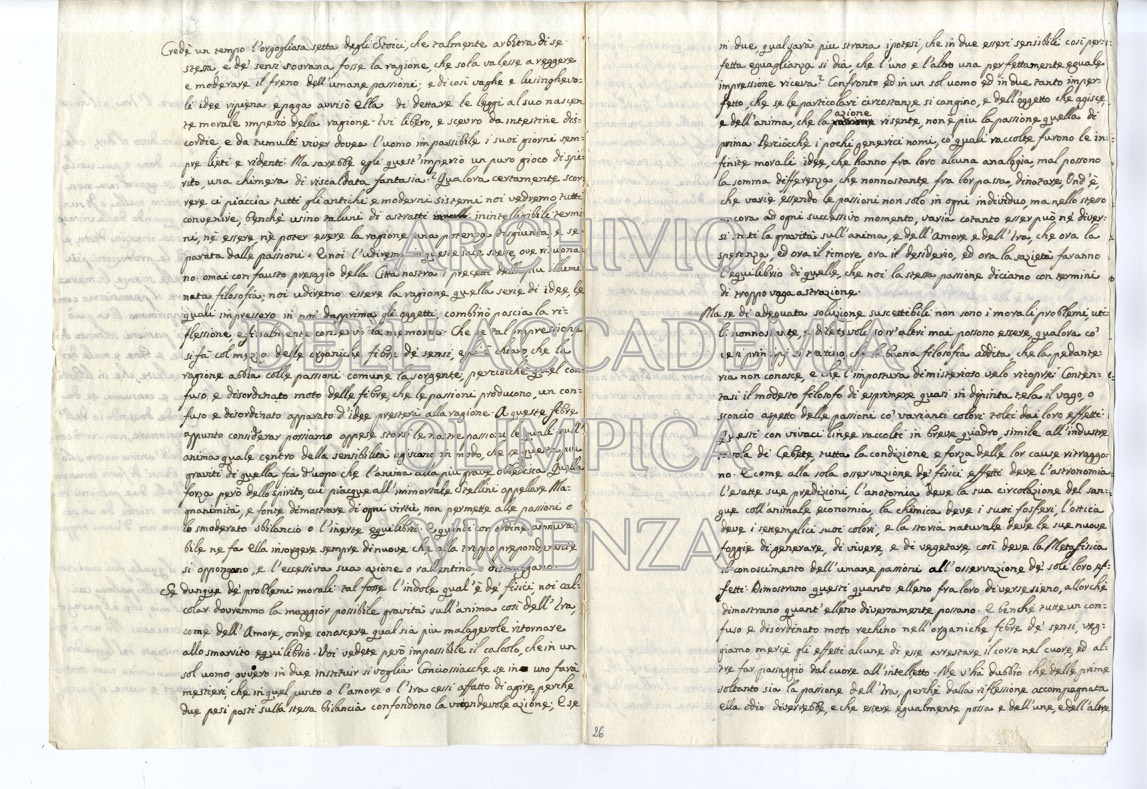 Credè un tempo l'orgogliosa setta degli Stoici, che talmente arbitra di se
stessa e de' sensi sovrana fosse la ragione, che sola valesse a reggere
e moderare il freno dell'umane passioni; e di così vaghe e lusinghevo-
li idee ripiena e paga avvisò ella di dettare le leggi al suo nascen-
te morale imperio della ragione. Ivi libero, e scevro da intestine dis-
cordie, e da tumulti viver dovea l'uomo impassibile i suoi giorni sem-
pre lieti e ridenti. Ma sarebbe egli quest'imperio un puro gioco di spi-
rito, una chimera di riscaldata fantasia? Qualora certamente scor-
rere ci piaccia tutti gli antichi e moderni sistemi noi vedremo tutti
convenire, benchè usino taluni di astratti inintelligibili termi-
ni, nè essere nè poter essere la ragione una potenza disgiunta e se-
parata dalle passioni. E noi l'udiremo queste ove risuona-
no omai con fausto presagio della Città nostra i precetti della più illumi-
nata filosofia; noi udiremo essere la ragione quella serie di idee, le
quali impressero in noi dapprima gli oggetti, combinò poscia la ri-
flessione, e finalmente conservò la memoria. Che se tal impressione
si fa col mezzo delle organiche fibre de' sensi, egli è chiaro, che la
ragione abbia colle passioni comune la sorgente, perciocchè quel con-
fuso e disordinato moto delle fibre, che le passioni producono, un con-
fuso e disordinato apparato d'idee presterà alla ragione. A queste fibre
appunto considerar possiamo appese starsi le nostre passioni, le quali sull'
anima quale centro della sensibilità agiscano in modo, che se questo più
graviti di quella fia d'uopo che l'anima alla più grave obbedisca. Quella
forza però dello spirito, cui piacque all'immortale Stellini appellare Ma-
gnanimità, e fonte dimostrare di ogni virtù non permette alle passioni o
lo smoderato sbilancio o l'inerte equilibrio e quindi con ordine ammira-
bile ne fa ella insorgere sempre di nuove che alla troppo preponderante
si oppongano, e l'eccessiva sua azione o rallentino o distruggano.
Se dunque de' problemi morali tal fosse l'indole qual'è de' fisici noi cal-
colar dovremmo la maggior possibile gravità sull'anima così dell'Ira
come dell'Amore, onde conoscere qual sia più malagevole ritornare
allo smarrito equilibrio. Voi vedete però impossibile il calcolo, che in un
sol uomo ovvero in due instituir si voglia. Conciossiacchè se in uno farà
mestieri, che in quel punto o l'amore o l'Ira cessi affatto di agire, perchè
due pesi posti sulla stessa bilancia confondono la vicendevole azione; e se
in due, qual sarà più strana ipotesi, che in due esseri sensibili così per-
fetta eguaglianza si dia che l'uno e l'altro una perfettamente eguale
impressione riceva? Confronto ed in un sol uomo ed in due tanto imper-
fetto, che se le particolari circostanze si cangino, e dell'oggetto che agisce,
azione
e dell'anima, che la risente, non è più la passione quella di
prima. Perciocchè i pochi generici nomi, co' quali raccolte furono le in-
finite morali idee, che hanno fra loro alcuna analogia, mal possono
la somma differenza che nonnostante fra lor passa, dinotare. Ond'è,
che varie essendo le passioni non solo in ogni individuo, ma nello stesso
ancora ad ogni successivo momento, varia cotanto esser può nè diver-
si stati la gravità sull'anima, e dell'Amore e dell'Ira, che ora la
speranza, ed ora il timore, ora il desiderio, ed ora la sazietà faranno
l'equilibrio di quelle, che noi la stessa passione diciamo con termini
di troppo vaga astrazione.
Ma se di adequata soluzione suscettibili non sono i morali problemi, uti-
li nonnostante, e dilettevoli so vr'altri mai possono essere, qualora co'
veri principj si trattino, che la buona filosofia addita, che la pedante-
ria non conosce, e che l'impostura di misterioso velo ricopre. Conten-
tasi il modesto filosofo di esprimere quasi in dipinta tela il vago, o
sconcio aspetto delle passioni co' varianti colori tolti dai loro effetti.
Questi con vivaci linee raccolti in breve quadro simile all'industre
tavola di Cebete tutta la condizione e forza delle lor cause ritraggo-
no. E come alla sola osservazione de' fisici effetti deve l'astronomia
l'esatte sue predizioni, l'anatomia deve la sua circolazione del san-
gue coll'animale economia, la chimica deve i suoi fosferi, l'ottica
deve i setemplici suoi colori, e la storia naturale deve le sue nuove
foggie di generare, di vivere, e di vegetare così deve la Metafisica
il conoscimento dell'umane passioni all'osservazione de' soli loro ef-
fetti. Dimostrano questi quanto elleno fra loro di verse sieno, allorchè
dimostrano quant'elleno diversamente possano. E benchè tutte un con-
fuso e disordinato moto rechino nell'organiche fibre de' sensi, veg-
giamo mercè gli effetti alcune di esse arrestare il corso nel cuore, ed al-
tre far passaggio dal cuore all'intelletto. Nè v'hà dubbio che delle prime
soltanto sia la passione dell'Ira, perchè dalla riflessione accompagnata
ella odio diverrebbe, e che essere egualmente possa e dell'une, e dell'altre
26
ARCHIVIO
DELL'ACCADEMIA
OLIMPICA
VICENZA